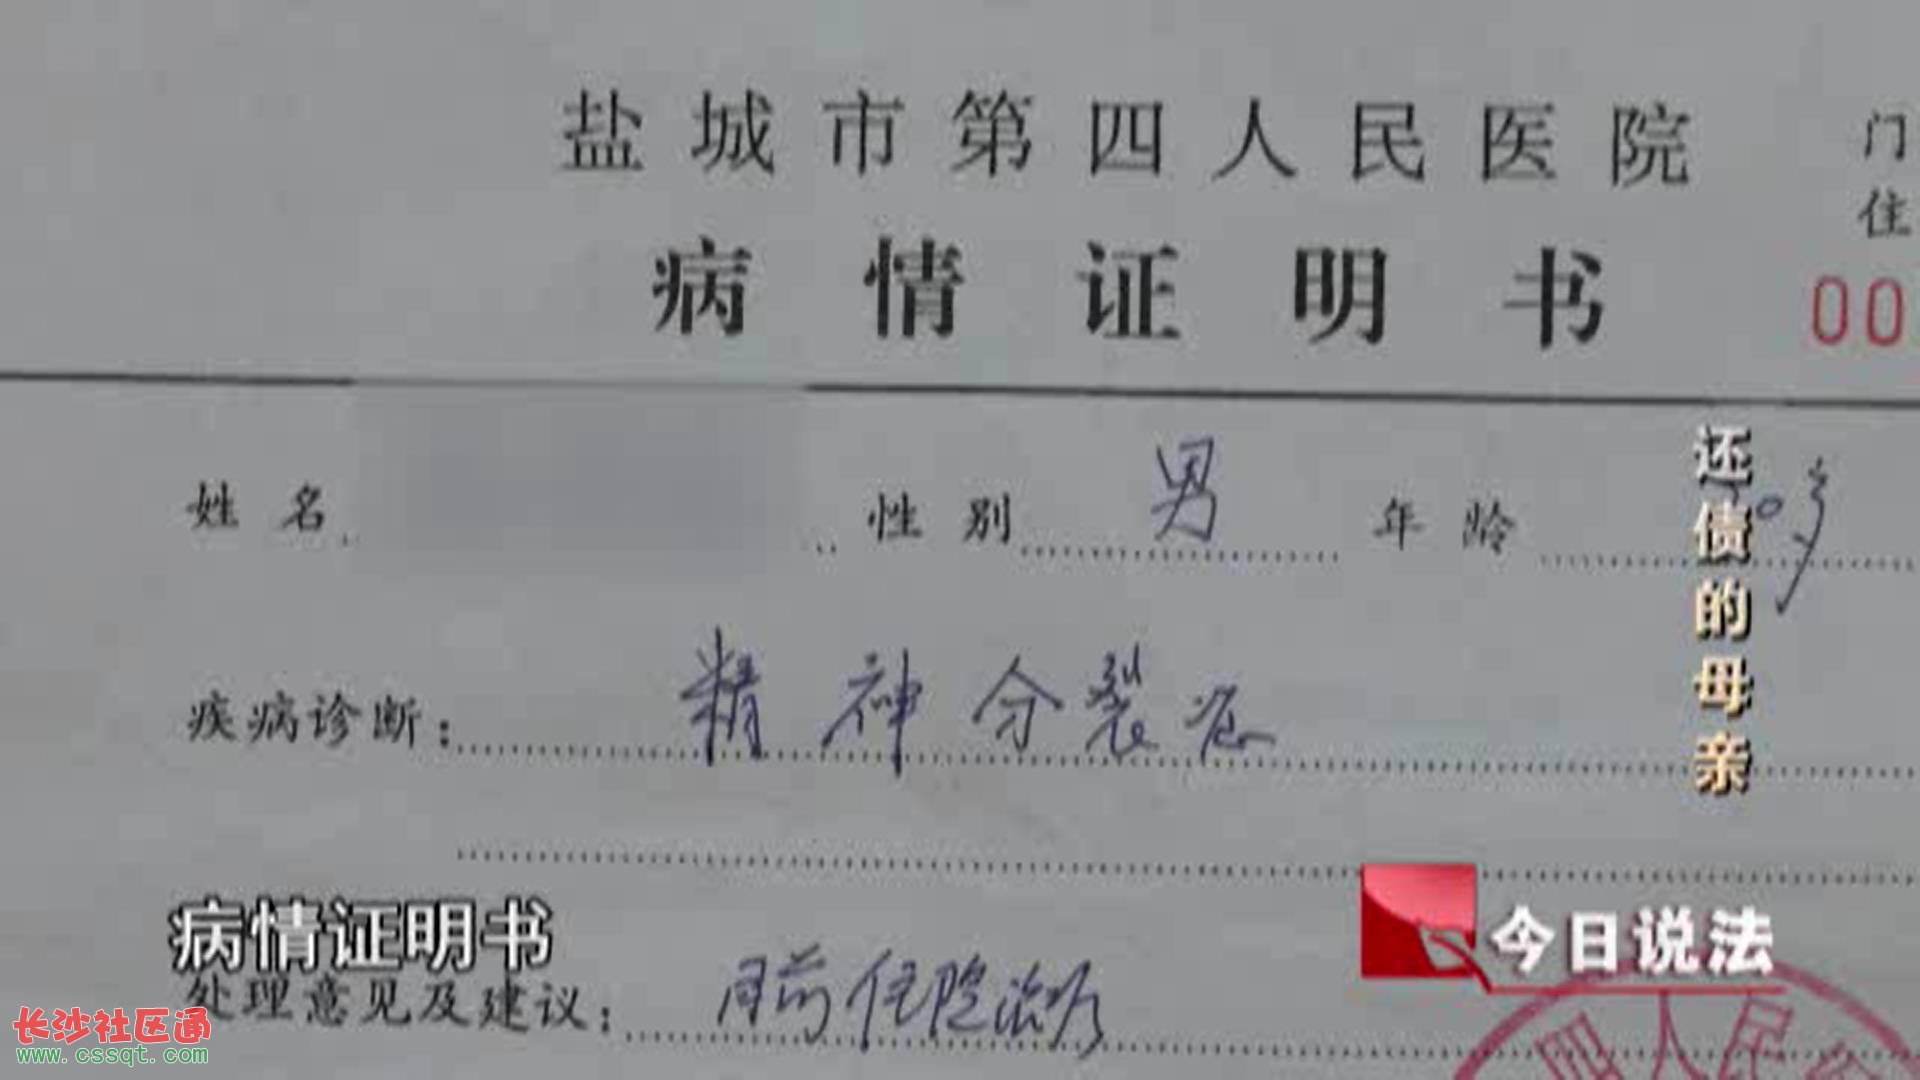 盐城市第四人民医院
门
住
病情证明书
00
姓名 性别 男 年龄 岁
疾病诊断： 精神分裂症
还债的母亲
病情证明书
今日说法
处理意见及建议： 目前住院治疗
四人民
长沙社区通
www.cssqt.com